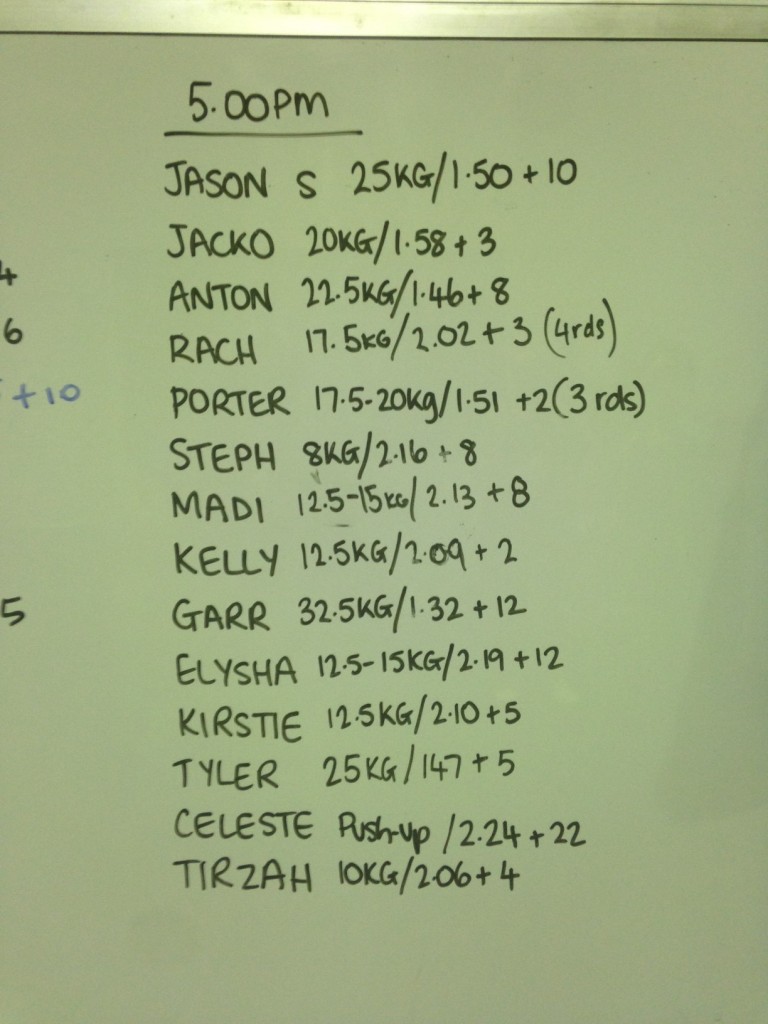 5.00PM
JASON S 25KG/1.50 + 10
JACKO 20KG/1.58 + 3
4
ANTON 22.5KG/1.46 + 8
6
RACH 17.5KG/2.02 + 3 (4rds)
+10
PORTER 17.5-20Kg/1.51 +2 (3 rds)
STEPH 8KG/2.16 + 8
MADI 12.5-15KG/2.13 + 8
KELLY 12.5KG/2.09 + 2
5
GARR 32.5KG/1.32 + 12
ELYSHA 12.5-15KG/2.19 + 12
KIRSTIE 12.5KG/2.10 + 5
TYLER 25KG/147 + 5
CELESTE Push-up /2.24 + 22
TIRZAH 10KG/2.06 + 4